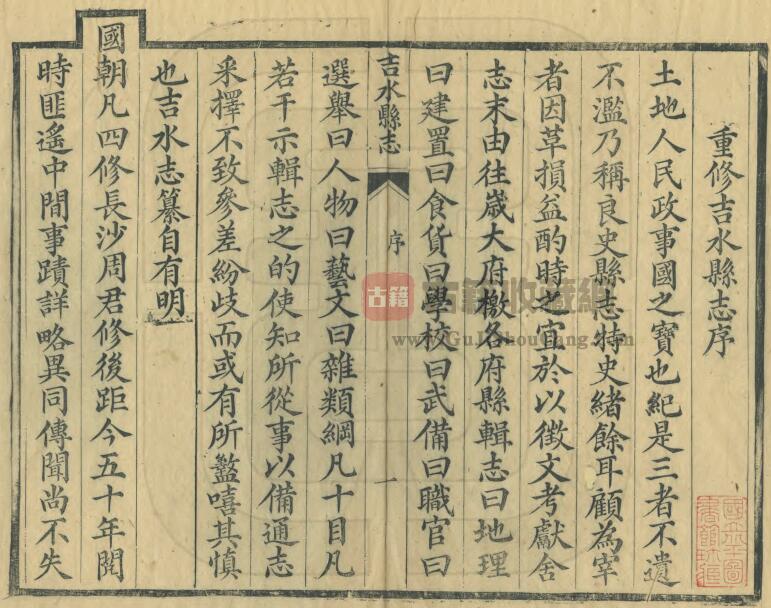 重修吉水縣志序
土地人民政事國之寶也紀是三者不遺
不濫乃稱良史縣志特史緒餘耳顧為宰
者因革損益酌時之宜於以徵文考獻舍
志末由往歲大府檄各府縣輯志曰地理
曰建置曰食貨曰學校曰武備曰職官曰
吉水縣志
序
一
選舉曰人物曰藝文曰雜類綱凡十目凡
若干示輯志之的使知所從事以備通志
采擇不致參差紛歧而或有所盭嘻其慎
也吉水志纂自有明
國朝凡四修長沙周君修後距今五十年閱
時匪遙中間事蹟詳略異同傳聞尚不失
古籍
古籍收藏網